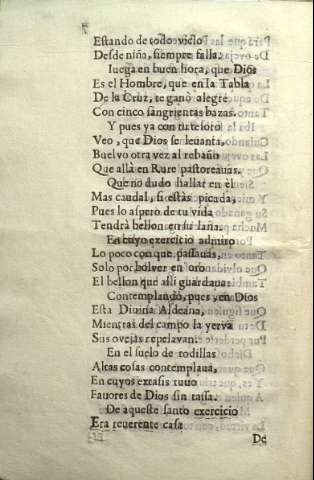 Estando de todo vicio
Desde niña, siempre falla:
Iuega en buen hora, que Dios
Es el Hombre, que en la Tabla
De la Cruz, te ganò alegre
Con cinco sangrientas bazas.
Y pues ya con tu resto
Veo, que Dios se leuanta,
Buelvo otra vez al rebaño
Que allà en Rure pastoreauas.
Que no dudo hallar en èl
Mas caudal, si estàs picada,
Pues lo aspero de tu vida
Tendrà bellon en su lana.
En cuyo exercicio admiro
Lo poco con que passauas,
Solo por bolver en oro
El bellon que alli guardaua:
Contemplando, pues, en Dios
Esta Diuina Aldeana,
Mientras del campo la yerva
Sus ovejas repelavan.
En el suelo de rodillas
Altas cosas contemplaua,
En cuyos extasis tuuo
Fauores de Dios sin tassa.
De aqueste santo exercicio
Era reuerente casa
De